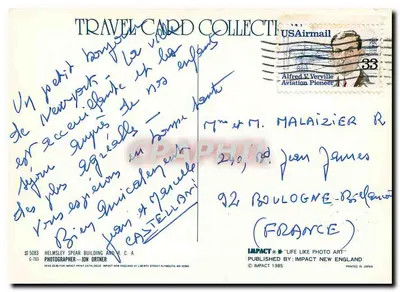 TRAVEL CARD COLLECTION
USAirmail
33
Alfred V. Verville
Aviation Pioneer
Un petit bonjour
de Newport. La ville
est accueillante et les
séjour auprès de nos enfants
des plus agréables
Vous espérons en bonne santé
Bien amicalement
Jean et Marcelle
CASTELLANI
Mme et M. MALAIZIER R
240, Bd Jean Jaures
92 BOULOGNE-
(FRANCE)
HELMSLEY SPEAR BUILDING AND R.C.A.
PHOTOGRAPHER - JON ORTNER
IMPACT "LIFE LIKE PHOTO ART"
PUBLISHED BY: IMPACT NEW ENGLAND
© IMPACT 1985
PRINTED IN JAPAN